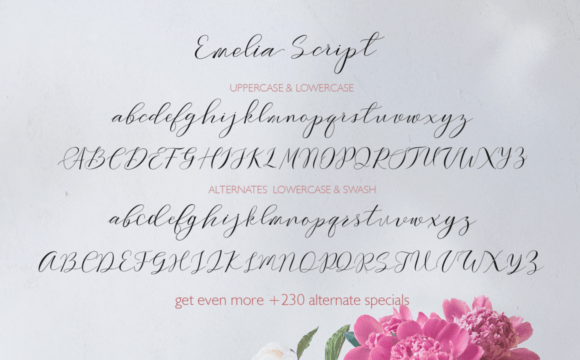 Emelia Script
UPPERCASE & LOWERCASE
abcdefghijklmnopqrstuvwxyz
ABCDEFGHIJKLMNOPQRSTUVWXYZ
ALTERNATES LOWERCASE & SWASH
abcdefghijklmnopqrstuvwxyz
ABCDEFGHIJKLMNOPQRSTUVWXYZ
get even more +230 alternate specials